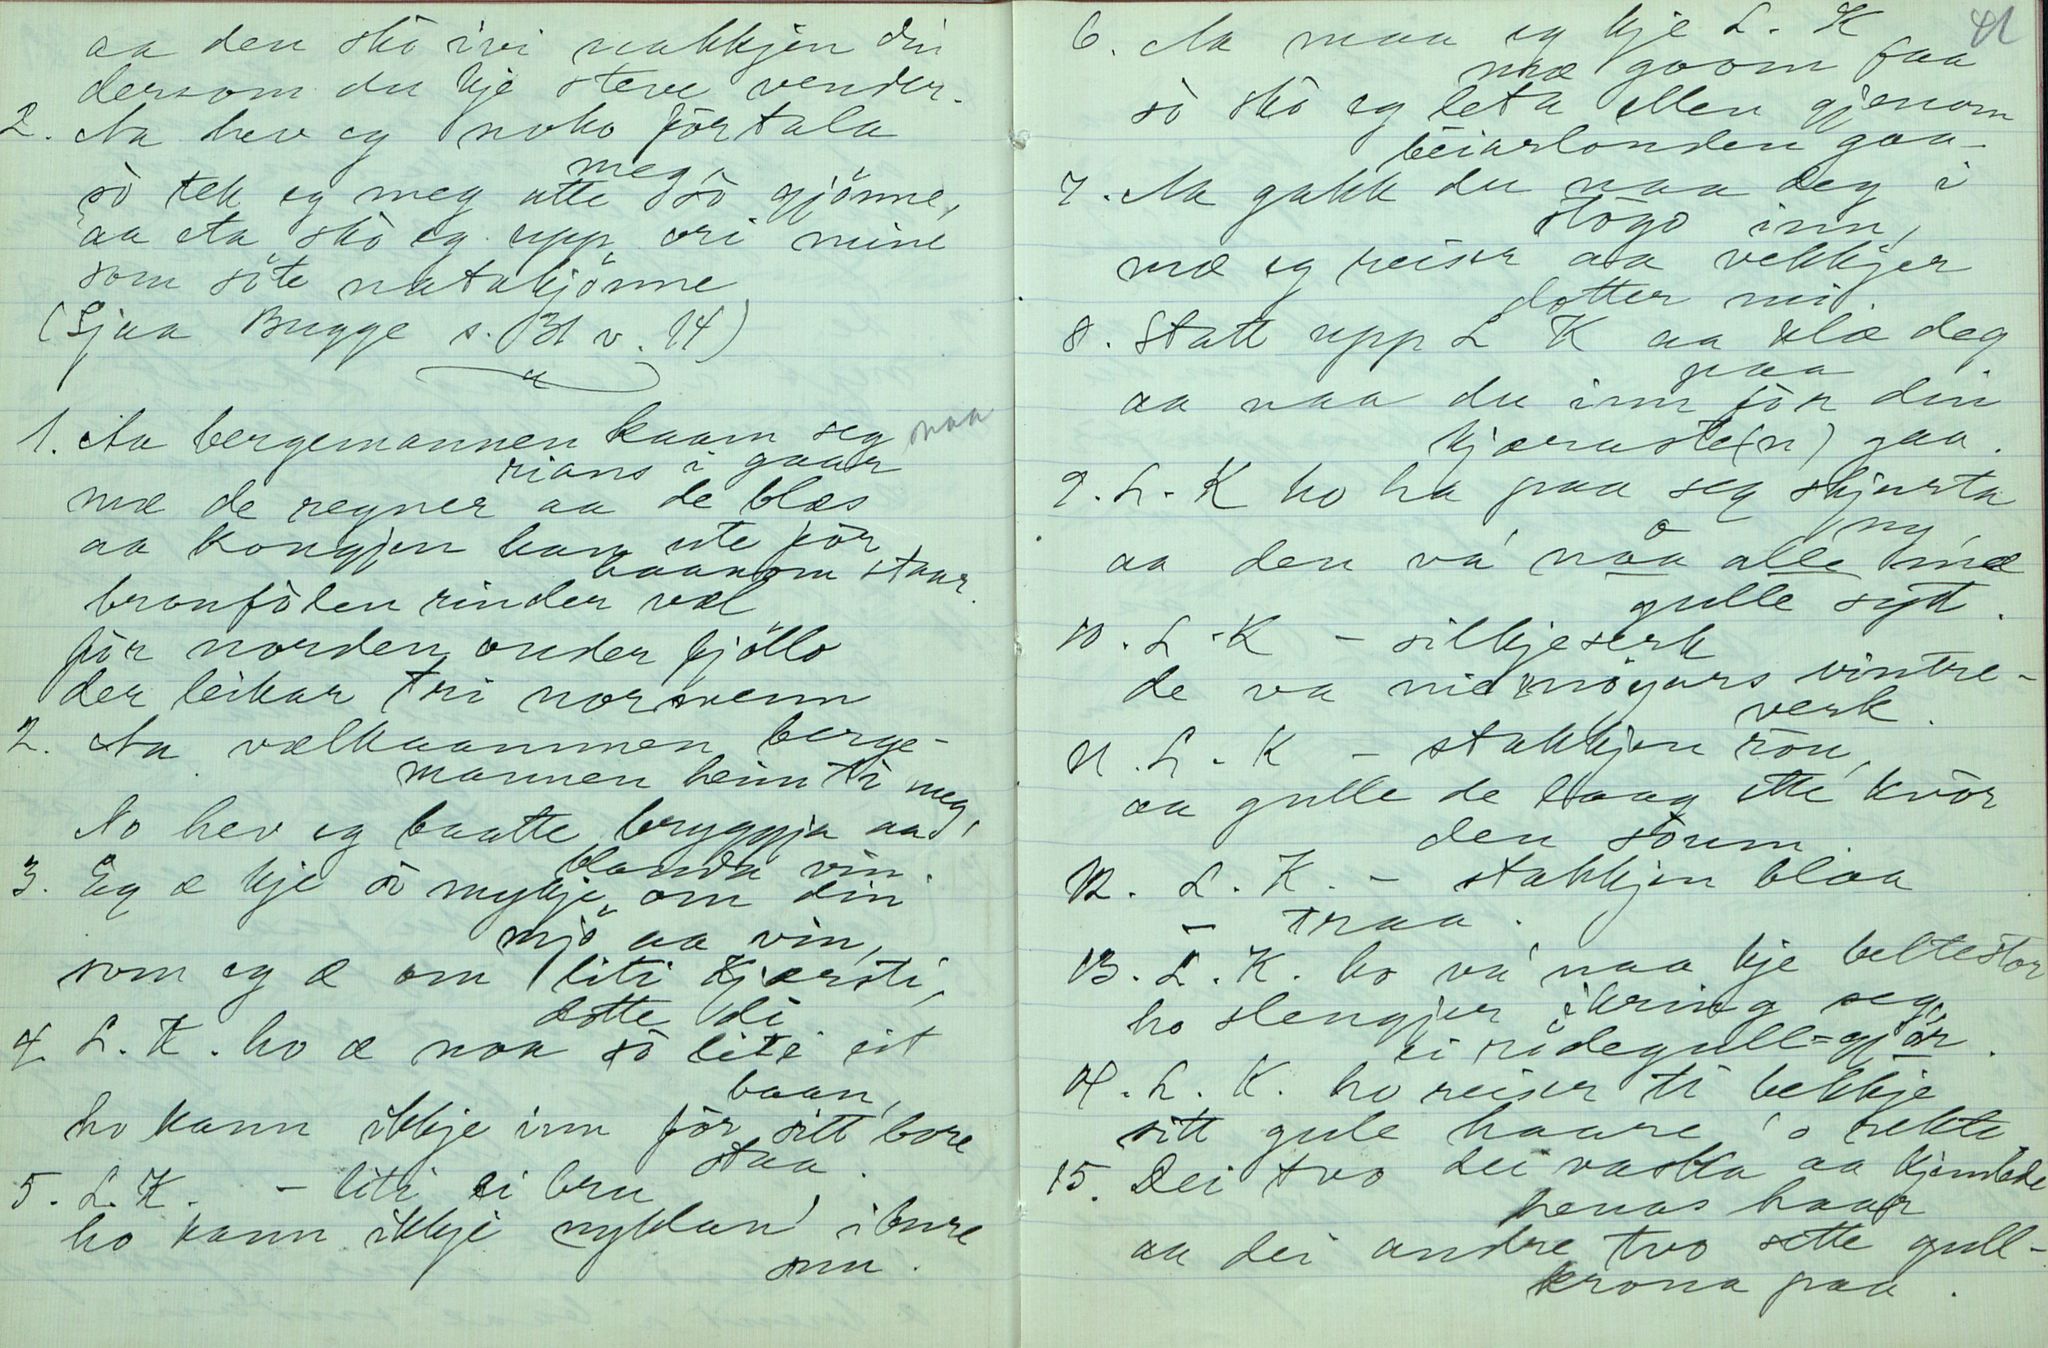 aa den skò ivi nakkjen din
dersom du kje steve vender.
2. Aa hev eg noko førtala
meg,
sò tek eg meg atte sò gjønne,
aa ta skò eg upp ori mine
som søte natakjønne
(Sjaa Bugge s. 31 v. 14)
1. Aa bergemannen kaam seg naa
rians i gaar
mæ de regner aa de blæs
aa Kongjen han ute før
haanom staar.
bronfòlen rinder væl
før norden under fjøllo
der leikar tri norsvenn
2. Aa vælkaammen berge-
mannen heim ti meg,
No hev eg baatte bryggja aa
blanda vin.
3. Eg æ kje sò mykje om din
mjø aa vin,
som eg æ om liti Kjærsti,
dotte di
4. L. K. ho æ naa sò liti eit
baan,
ho kann ikkje inn før sitt bore
staa.
5. L. K. – liti ei bru
ho kann ikkje nyklan i bure
snu.
41
6. Aa maa eg kje L. K
mæ goom faa
sò skò eg leta ellen gjenom
beiarlonden gaa –
7. Aa gakk du naa deg i
stògo inn,
mæ eg reiser aa vekkjer
dotter mi.
8. Statt upp L K aa klæ deg
paa
aa naa du inn før din
kjæraste(n) gaa.
9. L. K ho ha paa seg skjurta
ny
aa den va' naa alle mæ
gulle sydt.
10. L. K – silkjeserk
de va nie møyars vintre-
verk.
11. L. K – stakkjen rau,
aa gulle de laag itti kvør
den saum.
12. L. K. – stakkjen blaa
– traa.
13. L. K. ho va' naa kje beltestor
ho slengjer ikring seg
ei ròdegull=gjør.
14. L. K. ho reiser ti bekkje
sitt gule haare 'o rekte
15. Dei tvo dei vaska aa kjembde
henas haar
aa dei andre tvo sette gull-
krona paa.